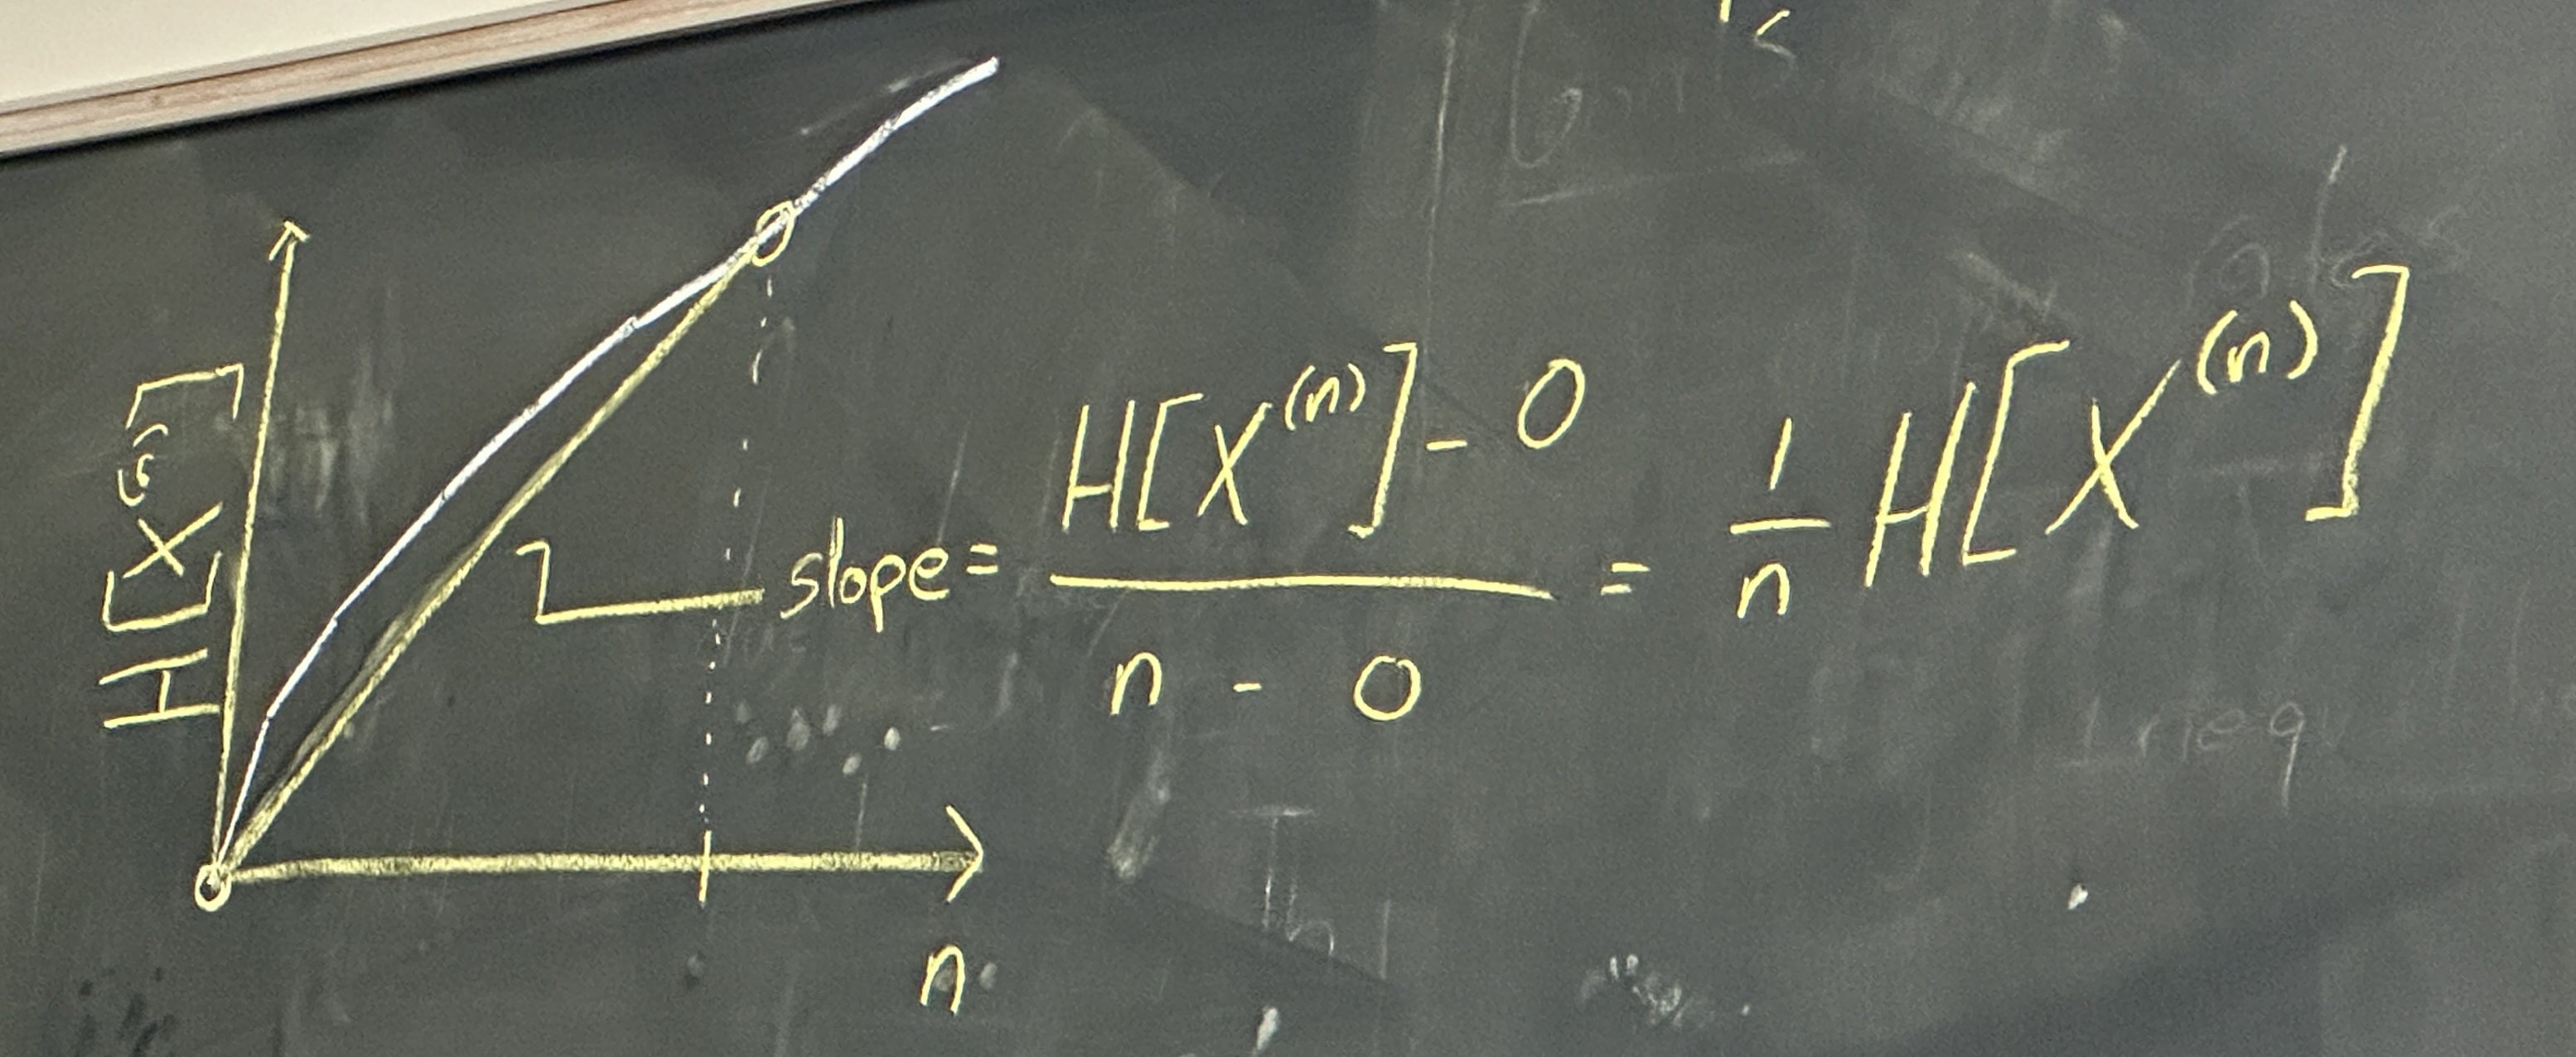 H[X^(n)]
slope = (H[X^(n)] - 0) / (n - 0) = 1/n H[X^(n)]
n